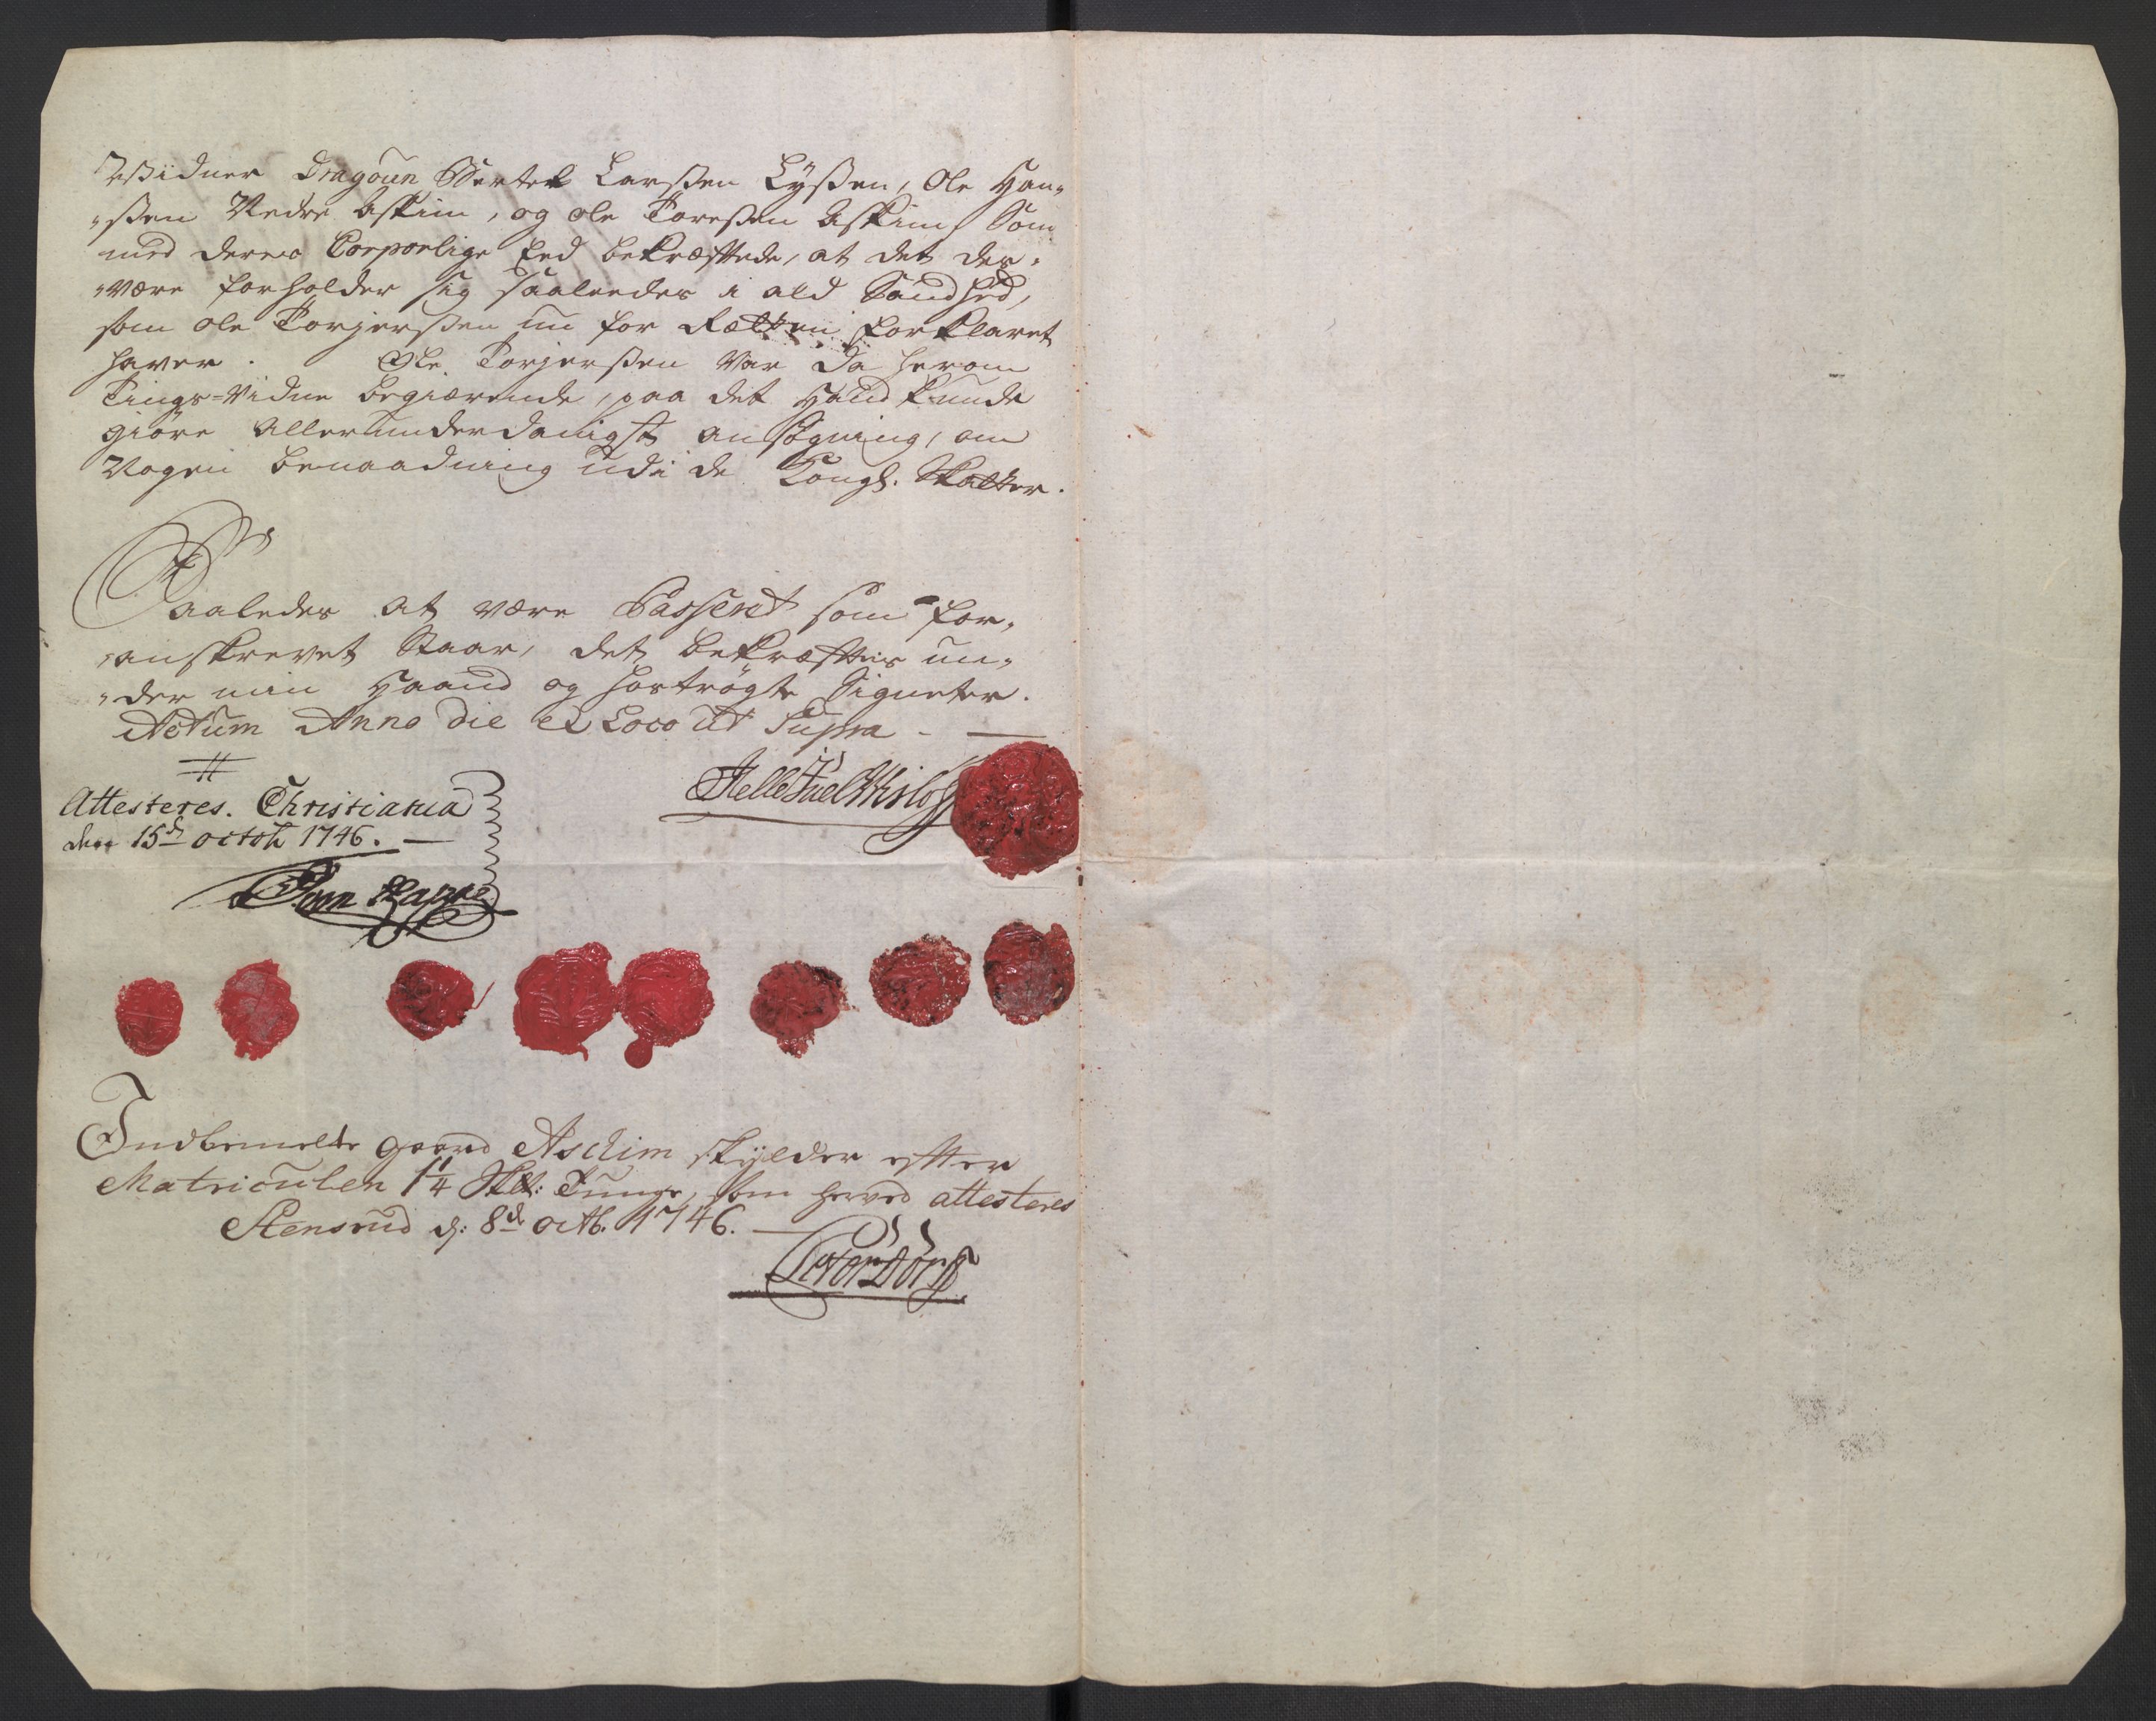 Widner Dragoun Bertel Larssen Lyssen, Ole Han„
„ssen Nedre Askim, og Ole Toressen Askim, Som
med deres Corporlige Eed bekræftede, at det des„
„være forholder sig saaledes i ald Sandhed,
som Ole Torgerssen nu for Rætten forklaret
haver. Ole Torgerssen var da herom
Tings-Vidne begiærende, paa det Hand kunde
giøre allerunderdanigst ansøgning, om
Nogen benaadning udi de Kongl. Skatter.
Saaledes at være Passeret som for„
„anskrevet Staar, det bekræftes un„
„der min Haand og hoströgte Signeter.
Actum Anno die et Loco ut Supra
Attesteres. Christiania
den 15de octob 1746.
Indbemelte gaard Aschim skylder efter
Matriculen 1¼ Skl: Tunge, som herved attesteres
Stensrud d: 8de octb. 1746.